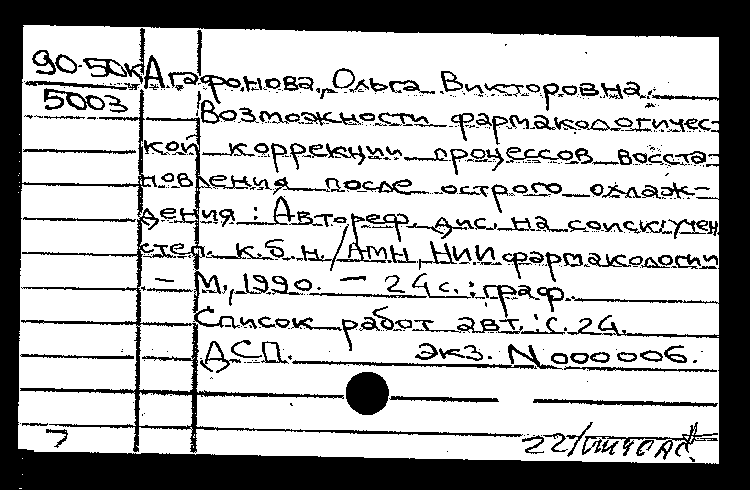 90-50к Агафонова, Ольга Викторовна.
5003 Возможности фармакологичес-
кой коррекции процессов восста-
новления после острого охлаж-
дения : Автореф. дис. на соиск. учен
степ. к.б.н. / АМН, НИИ фармакологии
– М., 1990. – 24 с. : граф.
Список работ авт.: с. 24.
ДСП. экз. N 000006.
7